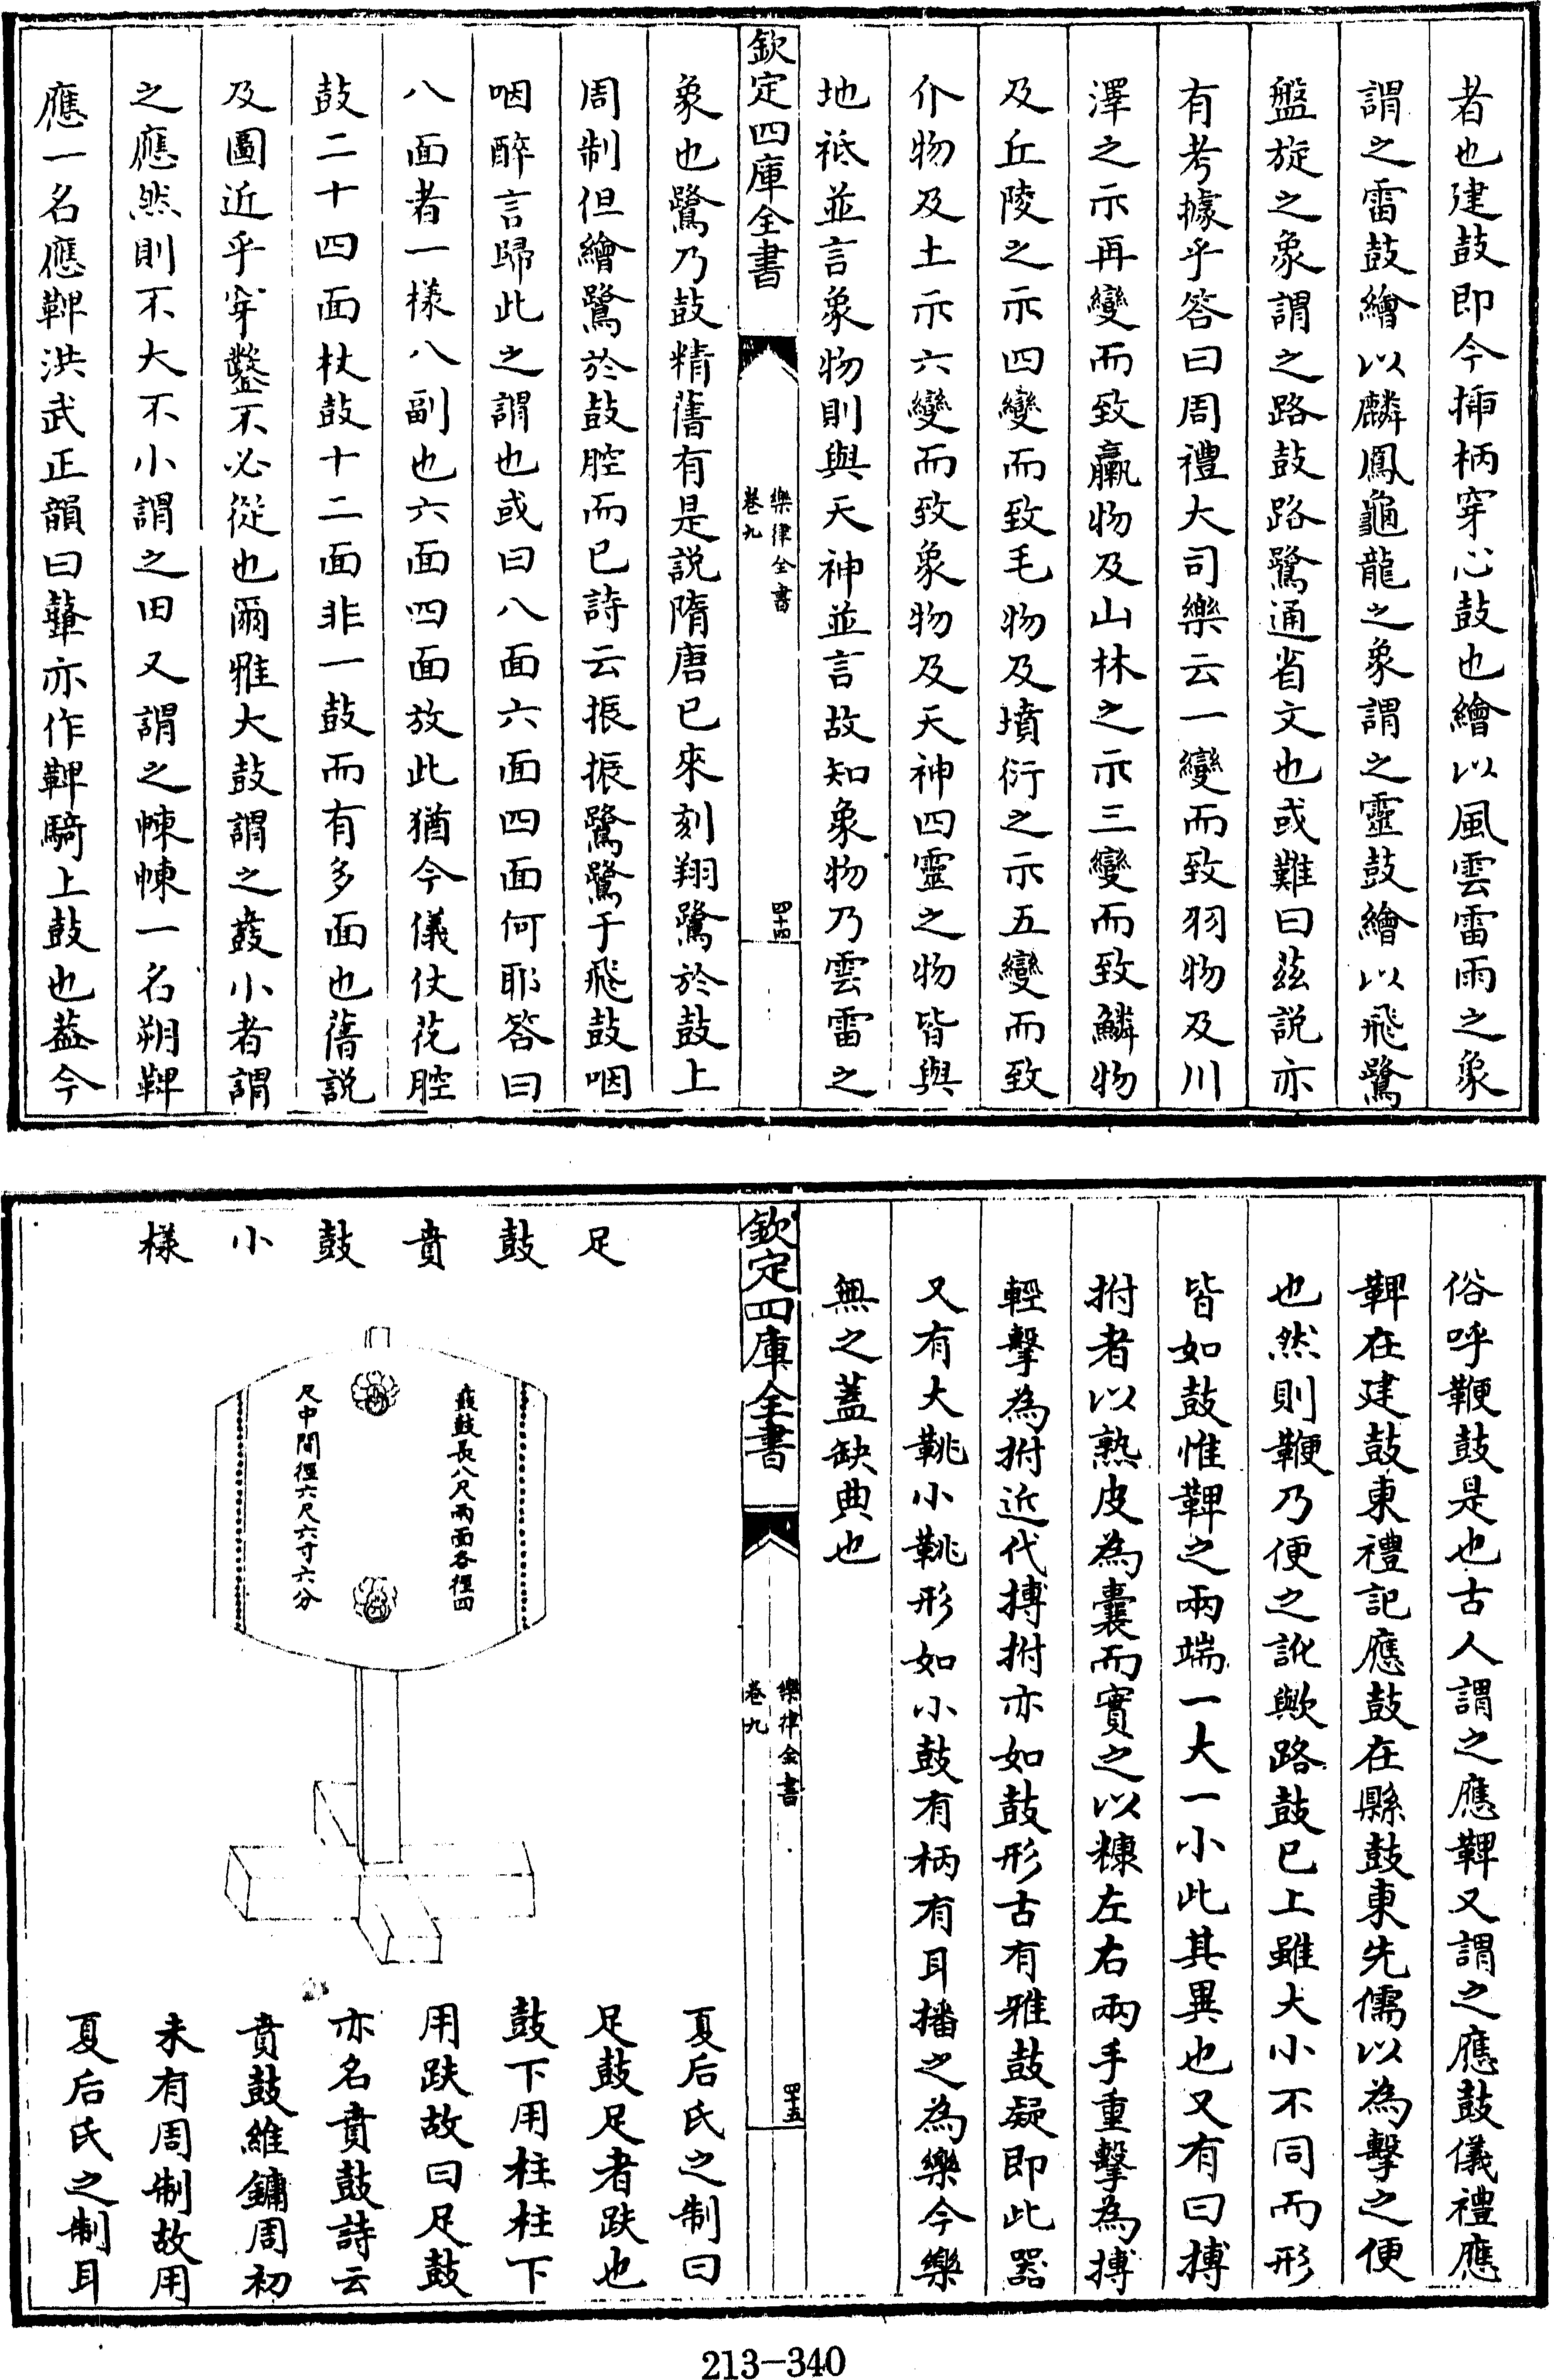 者也建鼓即今揷柄穿心鼓也繪以風雲雷雨之象
謂之雷鼓繪以麟鳳龜龍之象謂之靈鼓繪以飛鷺
盤旋之象謂之路鼓路鷺通省文也或難曰兹説亦
有考據乎答曰周禮大司樂云一變而致羽物及川
澤之示再變而致臝物及山林之示三變而致鱗物
及丘陵之示四變而致毛物及墳衍之示五變而致
介物及土示六變而致象物及天神四靈之物皆與
地祗並言象物則與天神並言故知象物乃雲雷之
欽定四庫全書
樂律全書
卷九
四十四
象也鷺乃鼓精舊有是説隋唐已來刻翔鷺於鼓上
周制但繪鷺於鼓腔而已詩云振振鷺鷺于飛鼓咽
咽醉言歸此之謂也或曰八面六面四面何耶答曰
八面者一様八副也六面四面放此猶今儀仗花腔
鼓二十四面杖鼓十二面非一鼓而有多面也舊説
及圖近乎穿鑿不必從也爾雅大鼓謂之鼖小者謂
之應然則不大不小謂之田又謂之㯥㯥一名朔鞞
應一名應鞞洪武正韻曰鼙亦作鞞騎上鼓也葢今
俗呼鞭鼓是也古人謂之應鞞又謂之應鼓儀禮應
鞞在建鼓東禮記應鼓在縣鼓東先儒以為擊之便
也然則鞭乃便之訛歟路鼓已上雖大小不同而形
皆如鼓惟鞞之兩端一大一小此其異也又有曰搏
拊者以熟皮為囊而實之以糠左右兩手重擊為搏
輕擊為拊近代搏拊亦如鼓形古有雅鼓疑即此器
又有大鞉小鞉形如小鼓有柄有耳播之為樂今樂
無之蓋缺典也
欽定四庫全書
樂律全書
卷九
四十五
足鼓賁鼓小様
鼖鼓長八尺兩面各徑四
尺中間徑六尺六寸六分
夏后氏之制曰
足鼓足者趺也
鼓下用柱柱下
用趺故曰足鼓
亦名賁鼓詩云
賁鼓維鏞周初
未有周制故用
夏后氏之制耳
213-340